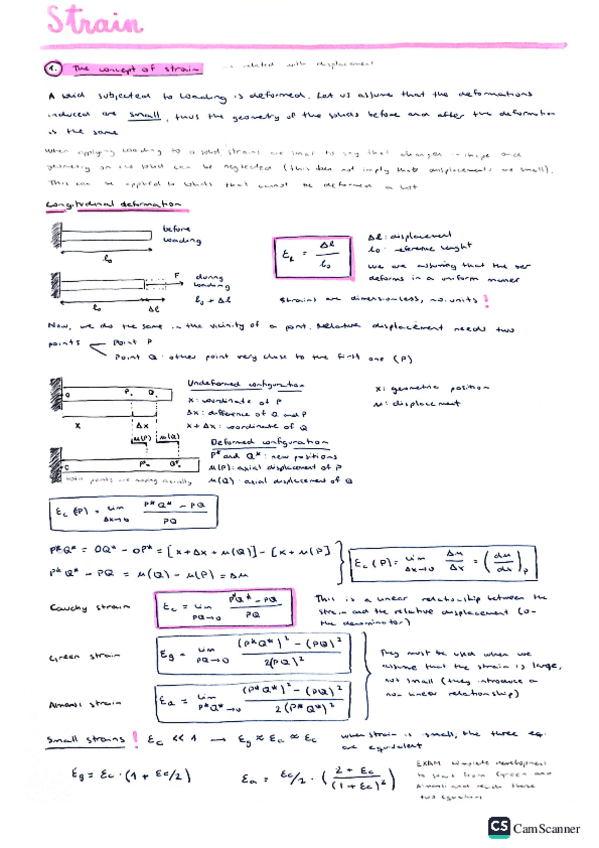 Strain
1. The concept of strain → related with displacement
A solid subjected to loading is deformed. Let us assume that the deformations
induced are small, thus the geometry of the solids before and after the deformation
is the same
When applying loading to a solid, strains are small to say that changes in shape and
geometry on the solid can be neglected (this does not imply that displacements are small).
This can be applied to solids that cannot be deformed a lot
Longitudinal deformation
before
loading
l₀
F
during
loading
l₀ Δl
l₀ + Δl
ε_l = Δl / l₀
Δl: displacement
l₀: reference lenght
we are assuming that the bar
deforms in a uniform manner
Strains are dimensionless, no units!
Now, we do the same in the vicinity of a point. Relative displacement needs two
points
Point P
Point Q: other point very close to the first one (P)
O P. Q.
x Δx
u(P) u(Q)
P* Q*
points are moving axially
Undeformed configuration
x: coordinate of P
Δx: difference of Q and P
x + Δx: coordinate of Q
Deformed configuration
P* and Q*: new positions
u(P): axial displacement of P
u(Q): axial displacement of Q
x: geometric position
u: displacement
ε_c (P) = lim Δx→0 (P*Q* - PQ) / PQ
P*Q* = OQ* - OP* = [x + Δx + u(Q)] - [x + u(P)]
P*Q* - PQ = u(Q) - u(P) = Δu
ε_c (P) = lim Δx→0 Δu/Δx = (du/dx)_P
Cauchy strain
ε_c = lim PQ→0 (P*Q* - PQ) / PQ
This is a linear relationship between the
strain and the relative displacement (on
the denominator)
Green strain
ε_g = lim PQ→0 ((P*Q*)² - (PQ)²) / 2(PQ)²
Almansi strain
ε_a = lim P*Q*→0 ((P*Q*)² - (PQ)²) / 2(P*Q*)²
They must be used when we
assume that the strain is large,
not small (they introduce a
non linear relationship)
Small strains! ε_c << 1 → ε_g ≈ ε_a ≈ ε_c
when strain is small, the three eq.
are equivalent
ε_g = ε_c · (1 + ε_c/2)
ε_a = ε_c/2 · ( (2 + ε_c) / (1 + ε_c)² )
EXAM complete development
to start from Green and
Almansi and reach these
two equations
CS CamScanner